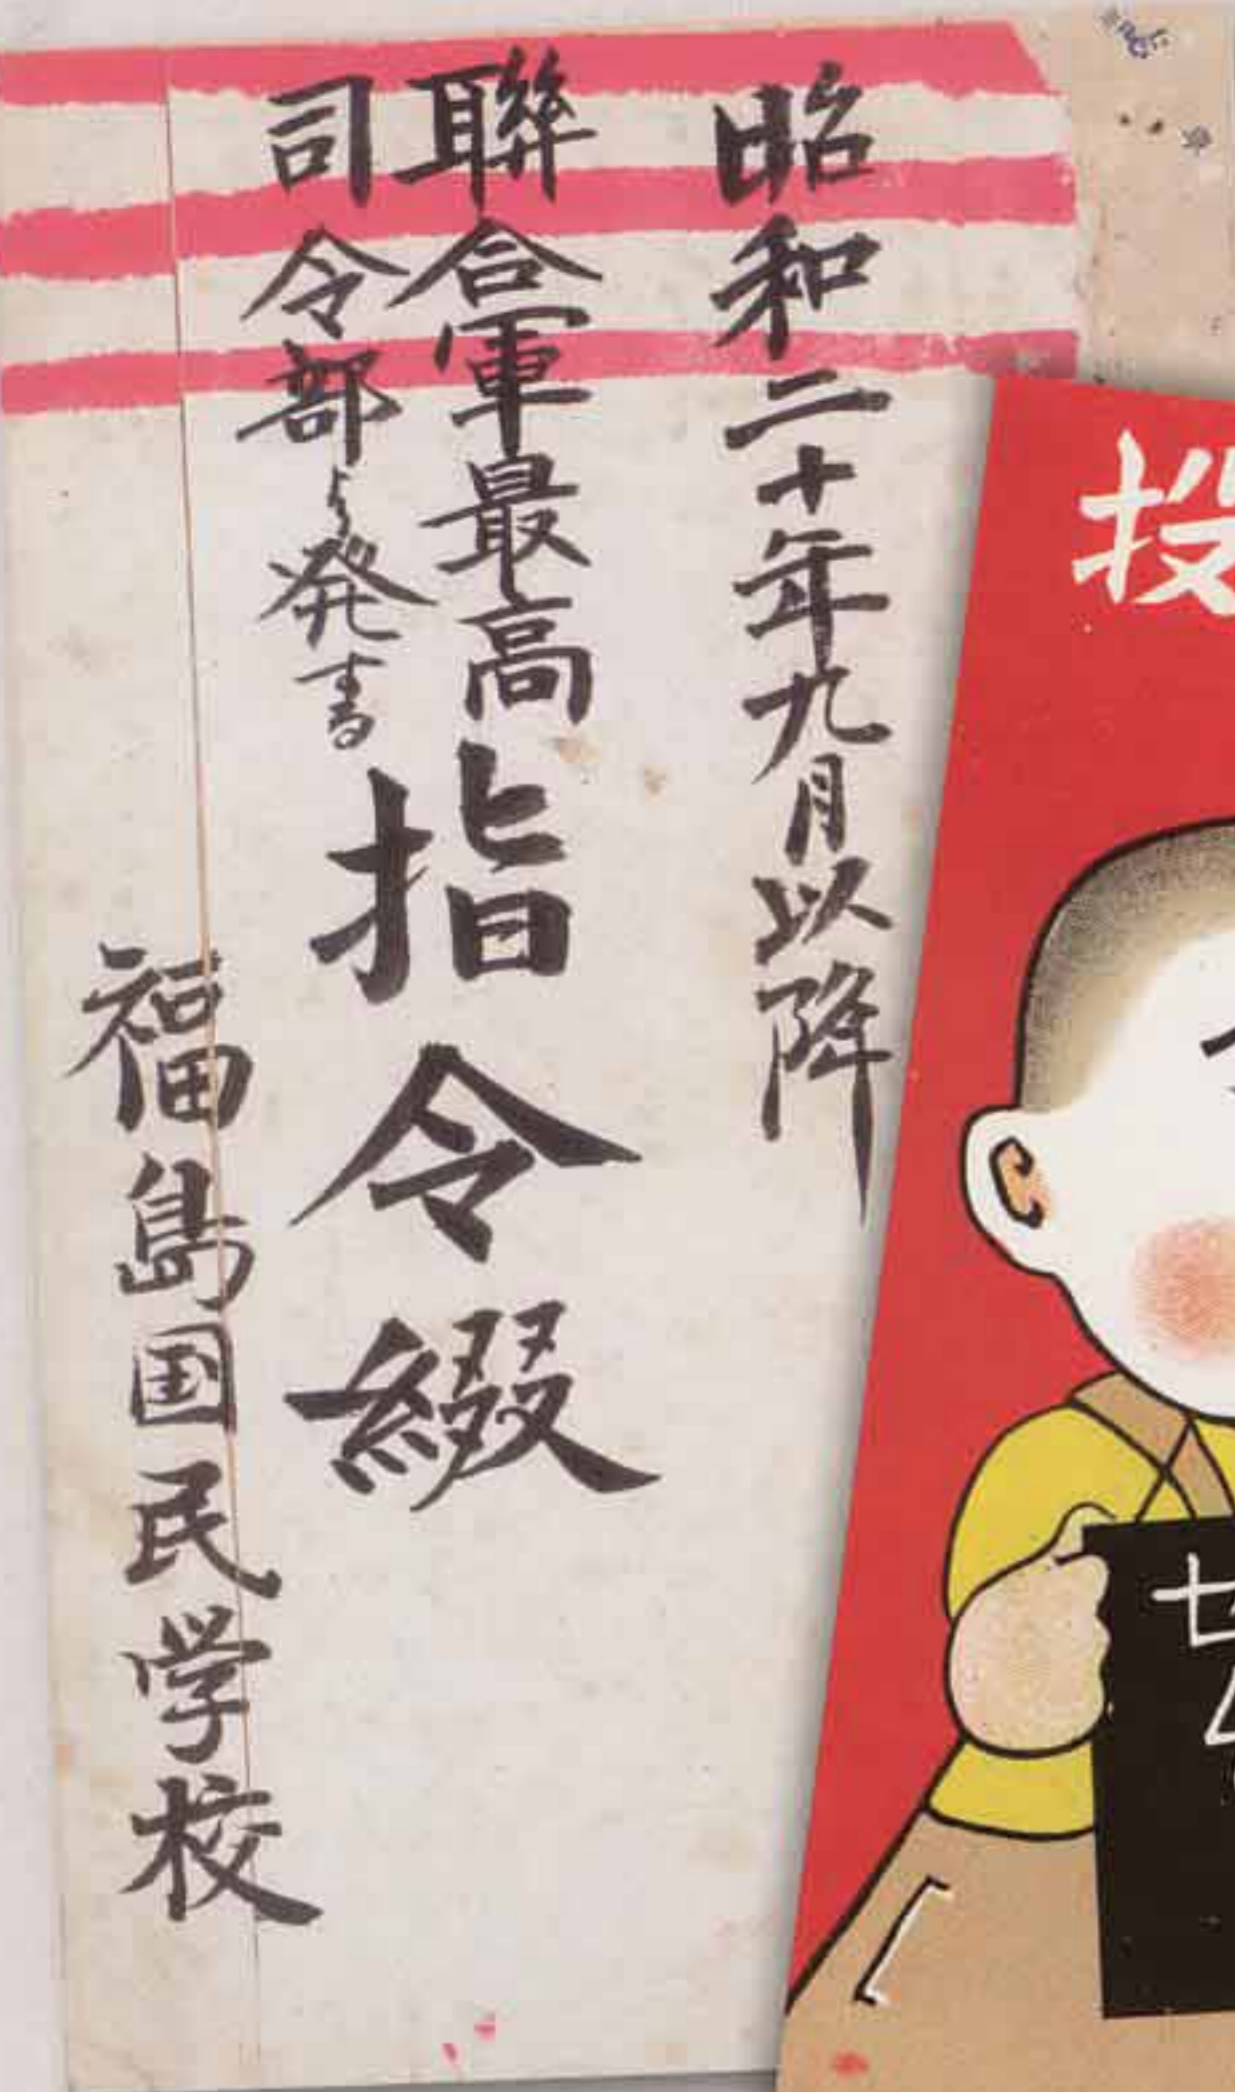 昭和二十年九月以降
聯合軍最高
司令部より発する
指令綴
福島国民学校
投